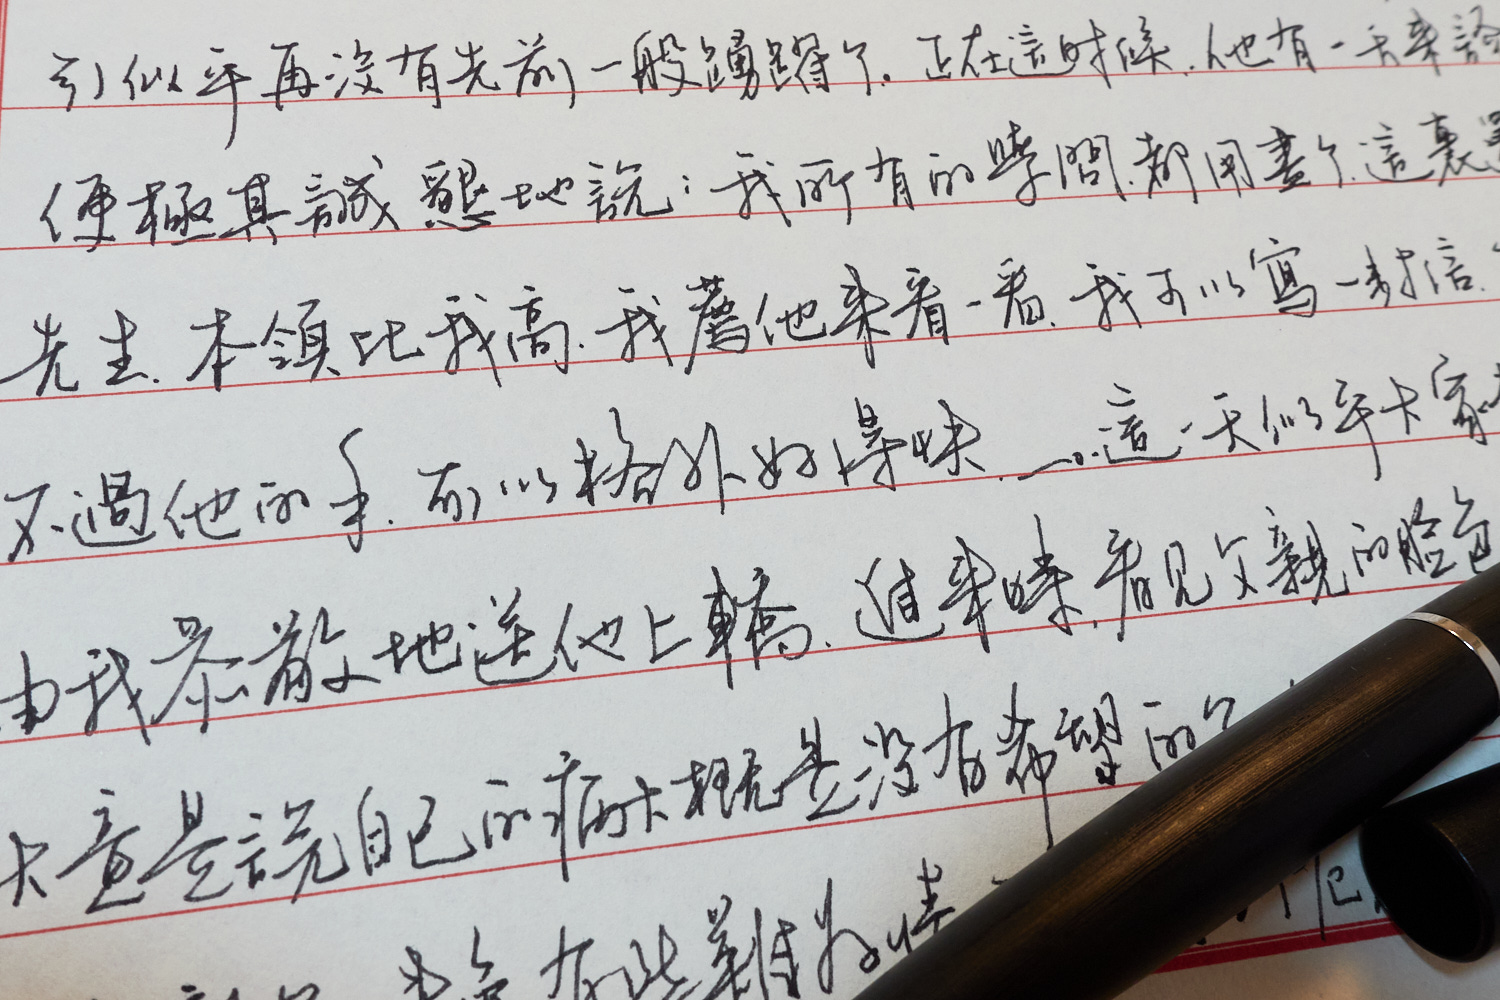 引似乎再沒有先前一般踴躍了。正在這時候，他有一天來診
便極其誠懇地說：我所有的學問，都用盡了，這裏還
先生，本領比我高，我薦他來看一看，我可以寫一封信。
不過他的手，所以格外好得快……。這一天似乎大家
由我恭敬地送他上轎，進來時，看見父親的臉色
大意是說自己的病大概是沒有希望的了
有些難為情